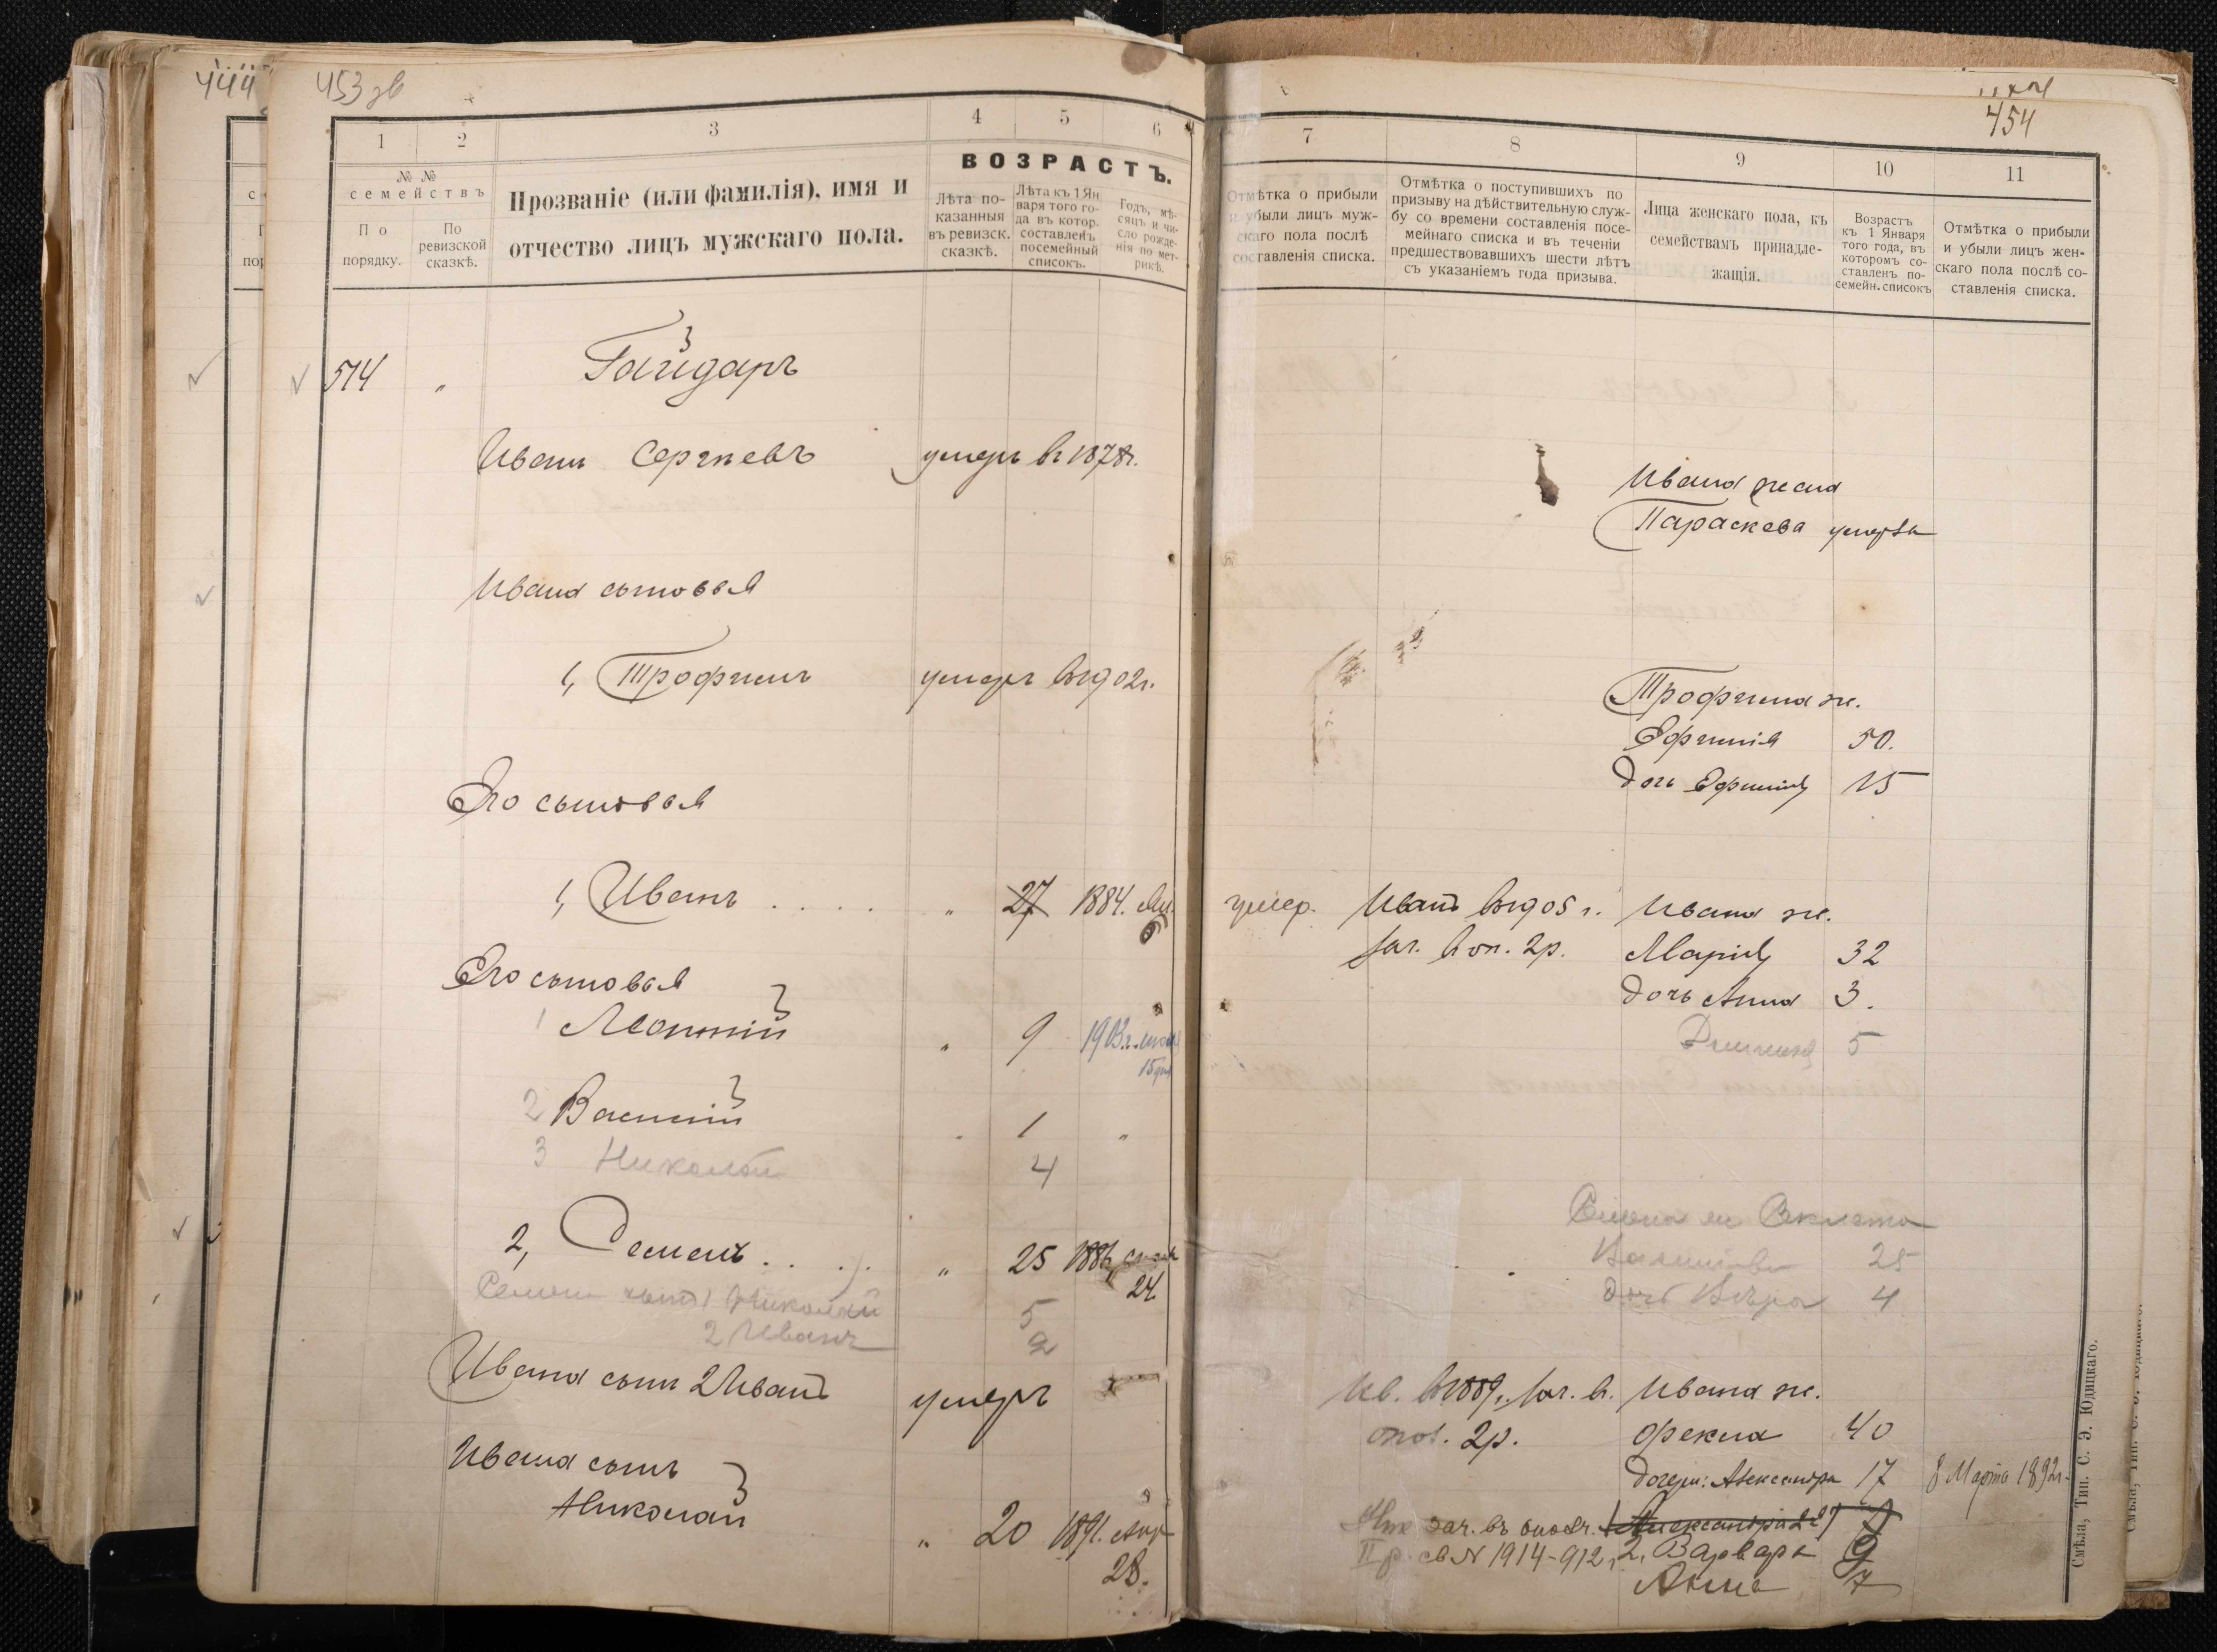 444
453 зв
454
1
2
3
4
5
6
№ №
семействъ
По порядку.
По ревизской сказкѣ.
Прозваніе (или фамилія), имя и
отчество лицъ мужскаго пола.
ВОЗРАСТЪ.
Лѣта по-
казанныя
въ ревизск.
сказкѣ.
Лѣта къ 1 Ян
варя того го-
да въ котор.
составленъ
посемейный
списокъ.
Годъ, мѣ-
сяцъ и чи-
сло рожде-
нія по мет-
рикѣ.
514 „ Гайдаръ
Иванъ Сергѣевъ умеръ въ 1878г.
Ивана сыновья
1, Трофимъ умеръ въ 1902г.
Его сыновья
1, Иванъ . . . . . „ 27 1884. Ян.
6
Его сыновья
1 Леонтій „ 9 1903г. июня
15 дня
2 Василій „ 1 „
3 Николай 4
2, Семенъ . . . „ 25 1886
24
Семена сын 1 Николай 5
2 Иванъ 2
Ивана сынъ 2 Иванъ умеръ
Ивана сынъ
Николай „ 20 1891. Апр
28.
7
8
9
10
11
Отмѣтка о прибыли
и убыли лицъ муж-
скаго пола послѣ
составленія списка.
Отмѣтка о поступившихъ по
призыву на дѣйствительную служ-
бу со времени составленія посе-
мейнаго списка и въ теченіи
предшествовавшихъ шести лѣтъ
съ указаніемъ года призыва.
Лица женскаго пола, къ
семействамъ принадле-
жащія.
Возрастъ
къ 1 Января
того года, въ
которомъ со-
ставленъ по-
семейн. списокъ
Отмѣтка о прибыли
и убыли лицъ жен-
скаго пола послѣ со-
ставленія списка.
Ивана жена
Параскева умерла
Трофима ж.
Ефимія 50.
дочь Ефимія 15
умер. Иванъ въ 1905 г. Ивана ж.
зач. в оп. 2р. Марія 32
дочь Анна 3.
5
Семена ж Феклета
25
дочь Вѣра 4
Ив. в 1889г. зач. в. Ивана ж.
опол. 2р. Фекла 40
дочери: Александра 17 8 Марта 1892г.
Ник зач. въ ополч. 1 Александра 2я
II р. св N 1914-912г. 2, Варвара 9
Анна 7
Смѣла, Тип. С. Э. Юдицкаго.